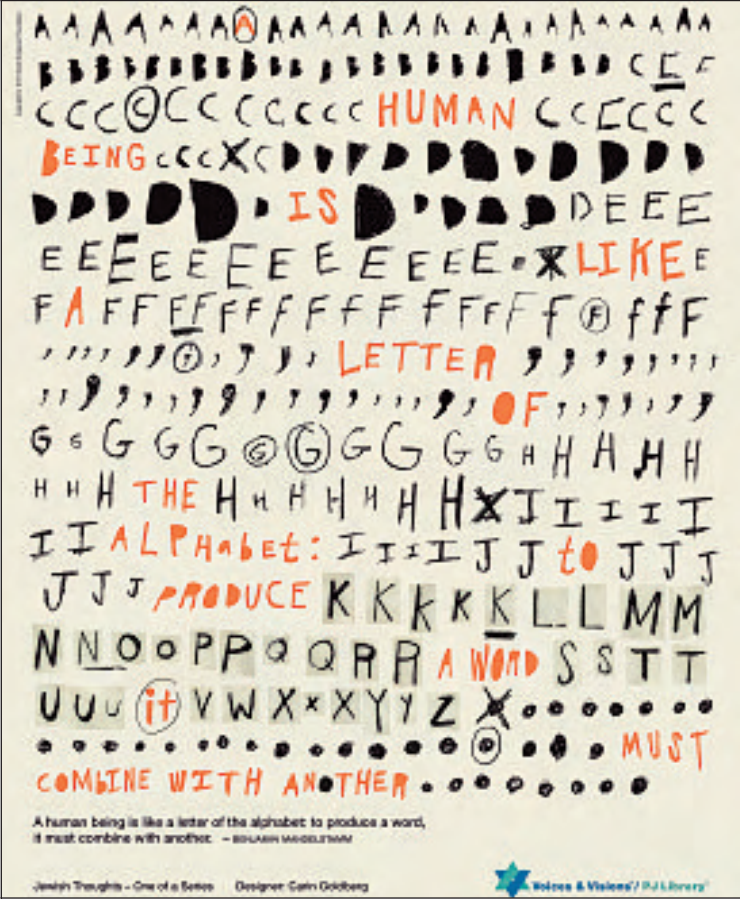 A A A A A A A A A A A A A A A A A A A A A A A A A
B B B B B B B B B B B B B B B B B B B B B B B C C C
C C C C C C C C C C C C HUMAN C C C C C C
BEING C C C X C D D D D D D D D D D D
D D D D D D IS D D D D D D E E E
E E E E E E E E E E E E . X LIKE E
F A F F F F F F F F F F F F F F f F f f F
, , , , , , , , , , , , LETTER , , , , , , , , , ,
, , , , , , , , , , , , , , , , , , , , OF , , , , , , , ,
G G G G G G G G G G G H H H H H
H H H THE H H H H H H H X J I I I I
I I ALPHabet: I I I I J J to J J J
J J J PRODUCE K K K K K L L M M
N N O O P P Q Q R R A WORD S S T T
U U U it V W X X X Y Y Z X . . . . . . . .
. . . . . . . . . . . . . . . . . . MUST
COMBINE WITH ANOTHER . . . . . . . . .
A human being is like a letter of the alphabet: to produce a word,
it must combine with another. – BENJAMIN MANDELSTAMM
Jewish Thoughts – One of a Series Designer: Carin Goldberg
Voices & Visions / PJ Library